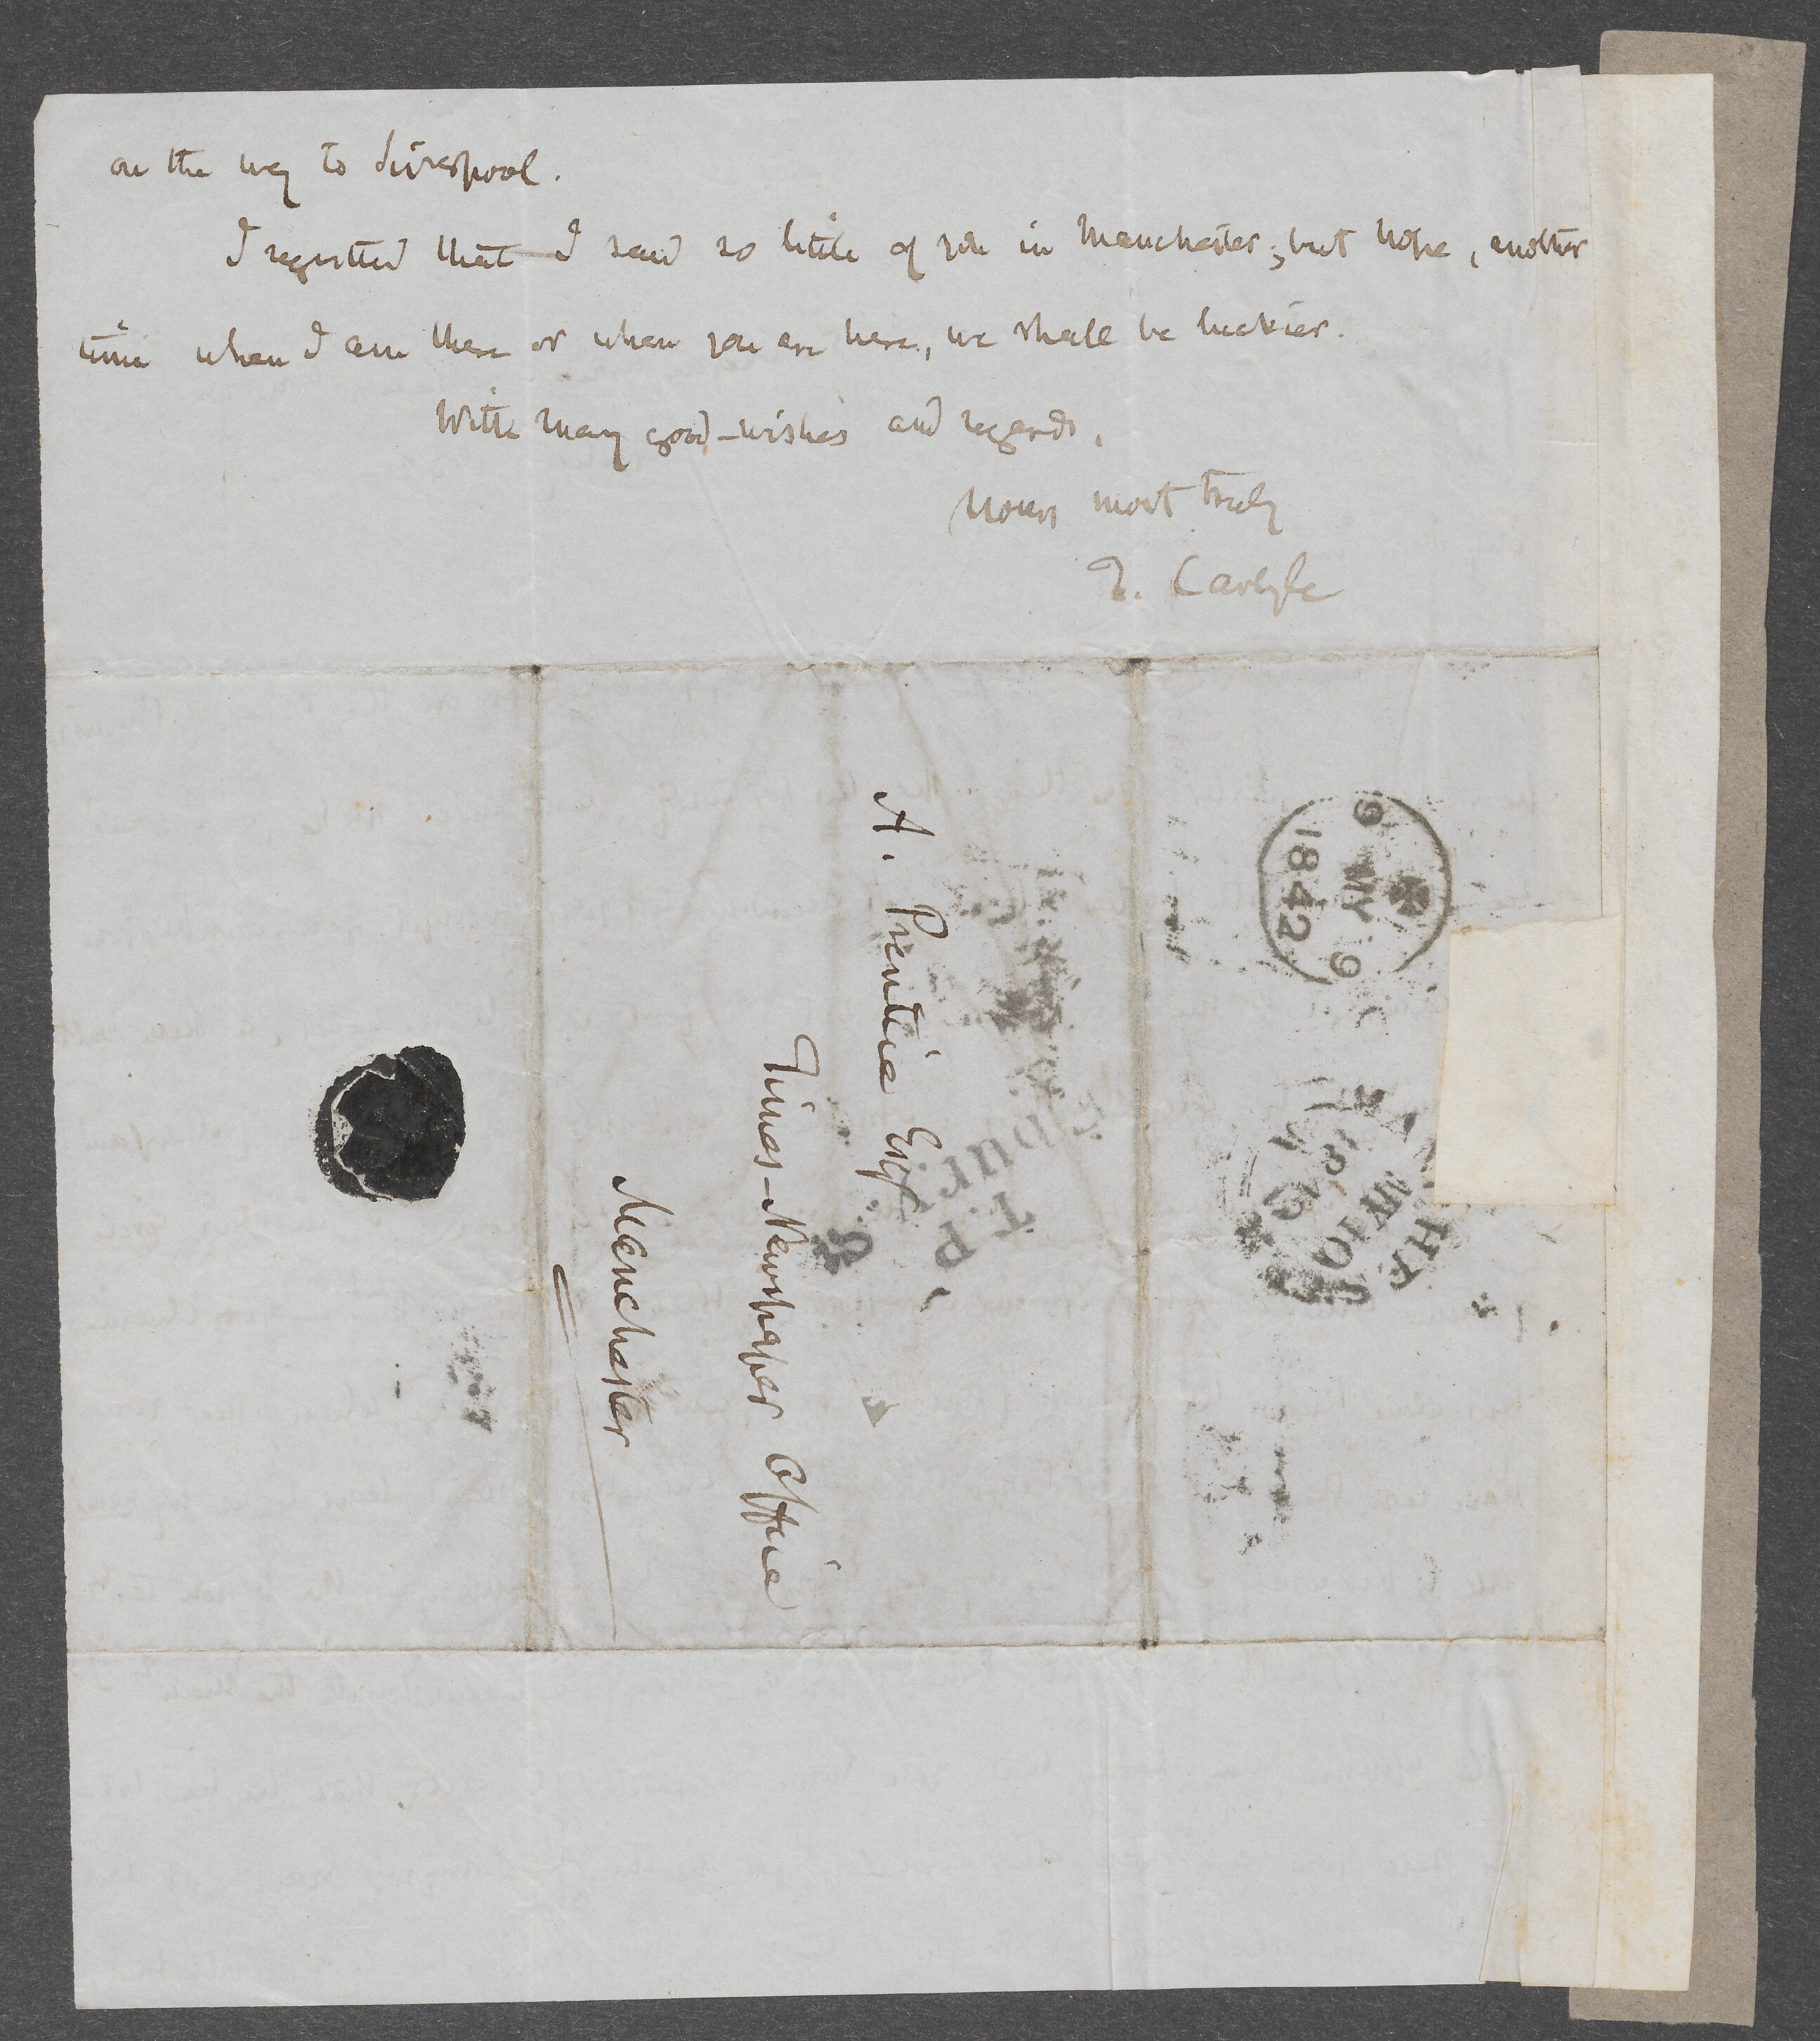 on the way to Liverpool.
I regretted that I saw so little of you in Manchester; but hope, another
time when I am there or when you are here, we shall be luckier.
With many good-wishes and regards,
Yours most truly
T. Carlyle
A. Prentice Esqr
Times-Newspaper Office
Manchester
9 MY 9
1842
T.P